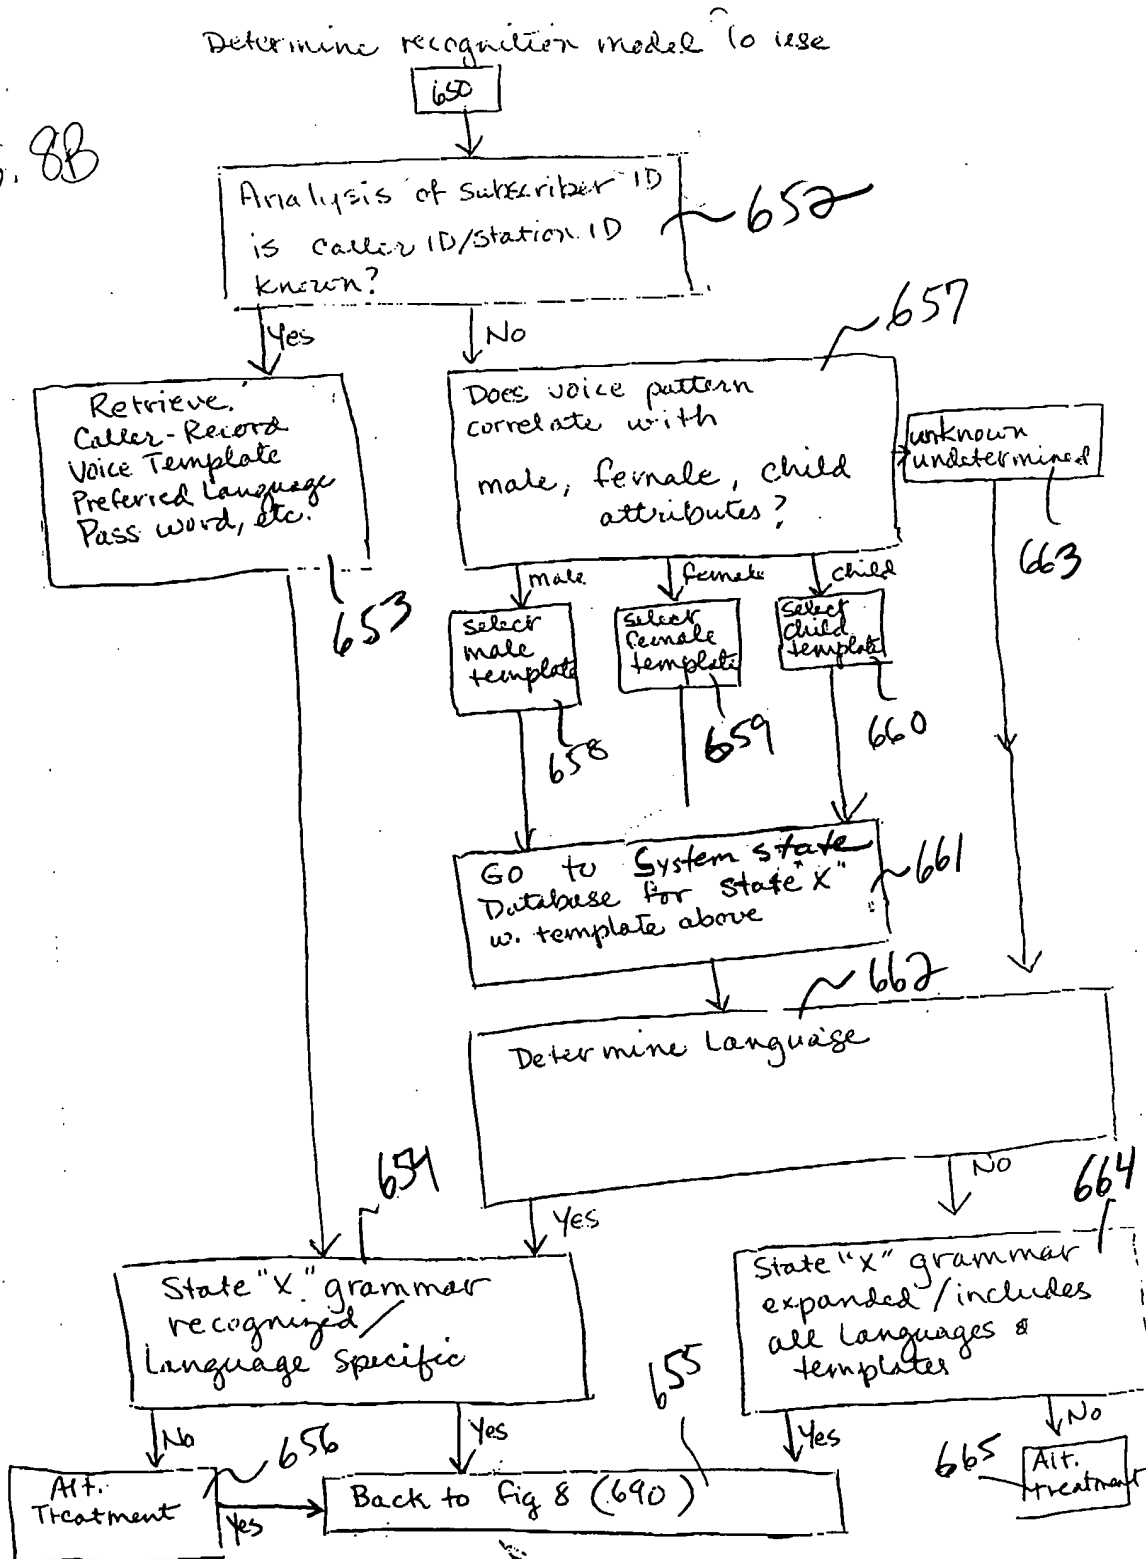 Determine recognition model to use
650
. 8B
Analysis of subscriber ID
is caller ID/station ID
known?
652
Yes
No
657
Retrieve.
Caller-Record
Voice Template
Preferred Language
Pass word, etc.
653
Does voice pattern
correlate with
male, female, child
attributes?
unknown
undetermined
663
male
female
child
select
male
template
select
female
template
select
child
template
658
659
660
Go to System state
Database for state "X"
w. template above
661
662
Determine Language
Yes
No
654
664
State "X" grammar
recognized/
Language specific
State "X" grammar
expanded/includes
all languages &
templates
655
No
Yes
Yes
No
656
Alt.
Treatment
Yes
Back to fig 8 (690)
665
Alt.
treatment